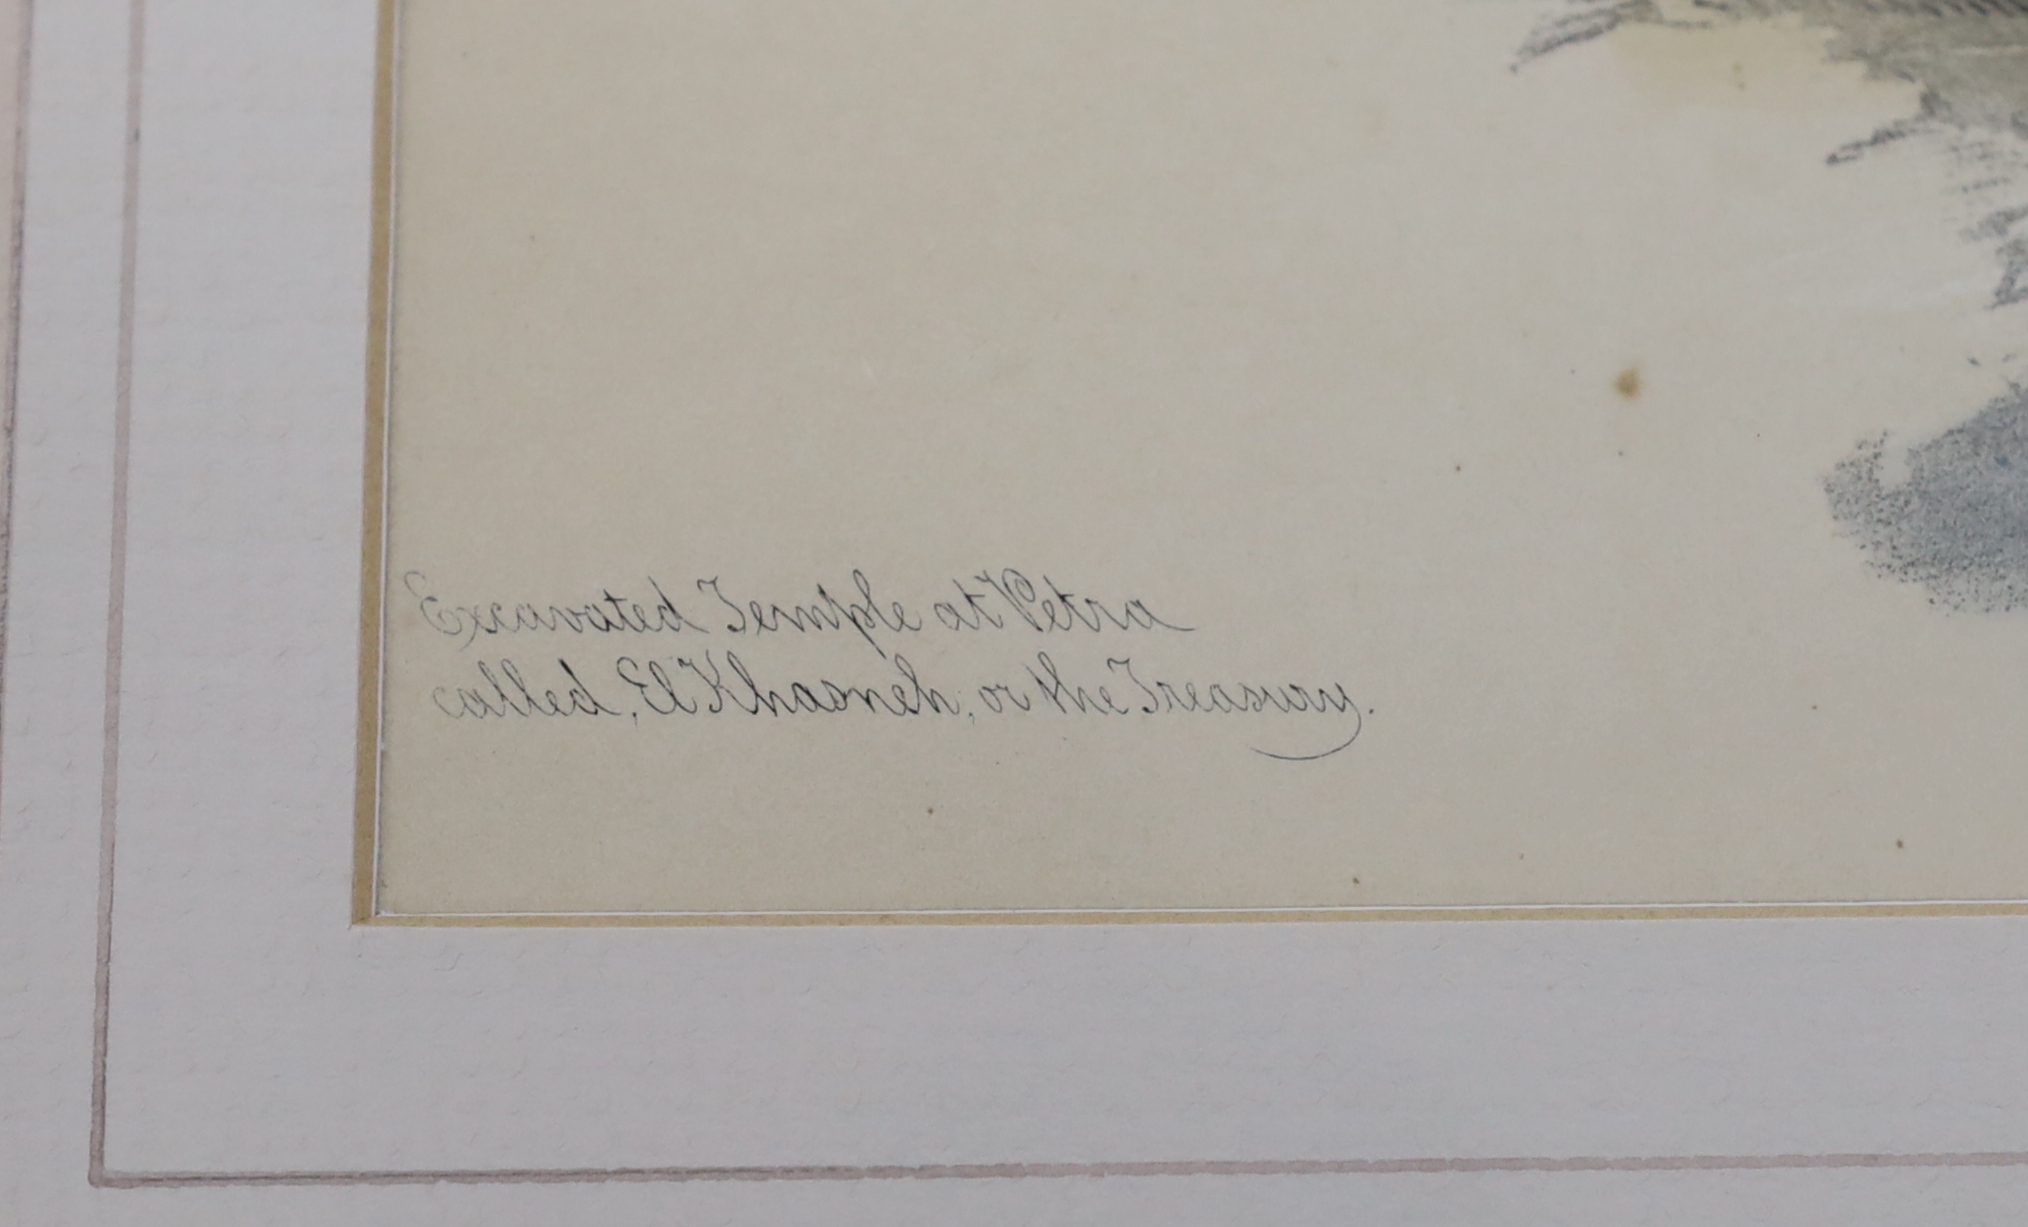 Excavated Temple at Petra
called, El Khasneh, or the Treasury.